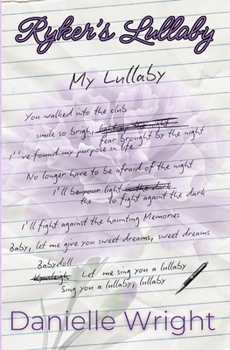 Ryker's Lullaby
My Lullaby
You walked into the club
smile so bright,
fear brought by the night
I've found my purpose in life
No longer have to be afraid of the night
I'll be your light in the dark
the to fight against the dark
I'll fight against the haunting Memories
Baby, let me give you sweet dreams, sweet dreams
Babydoll
Let me sing you a lullaby
Sing you a lullaby, lullaby
Danielle Wright